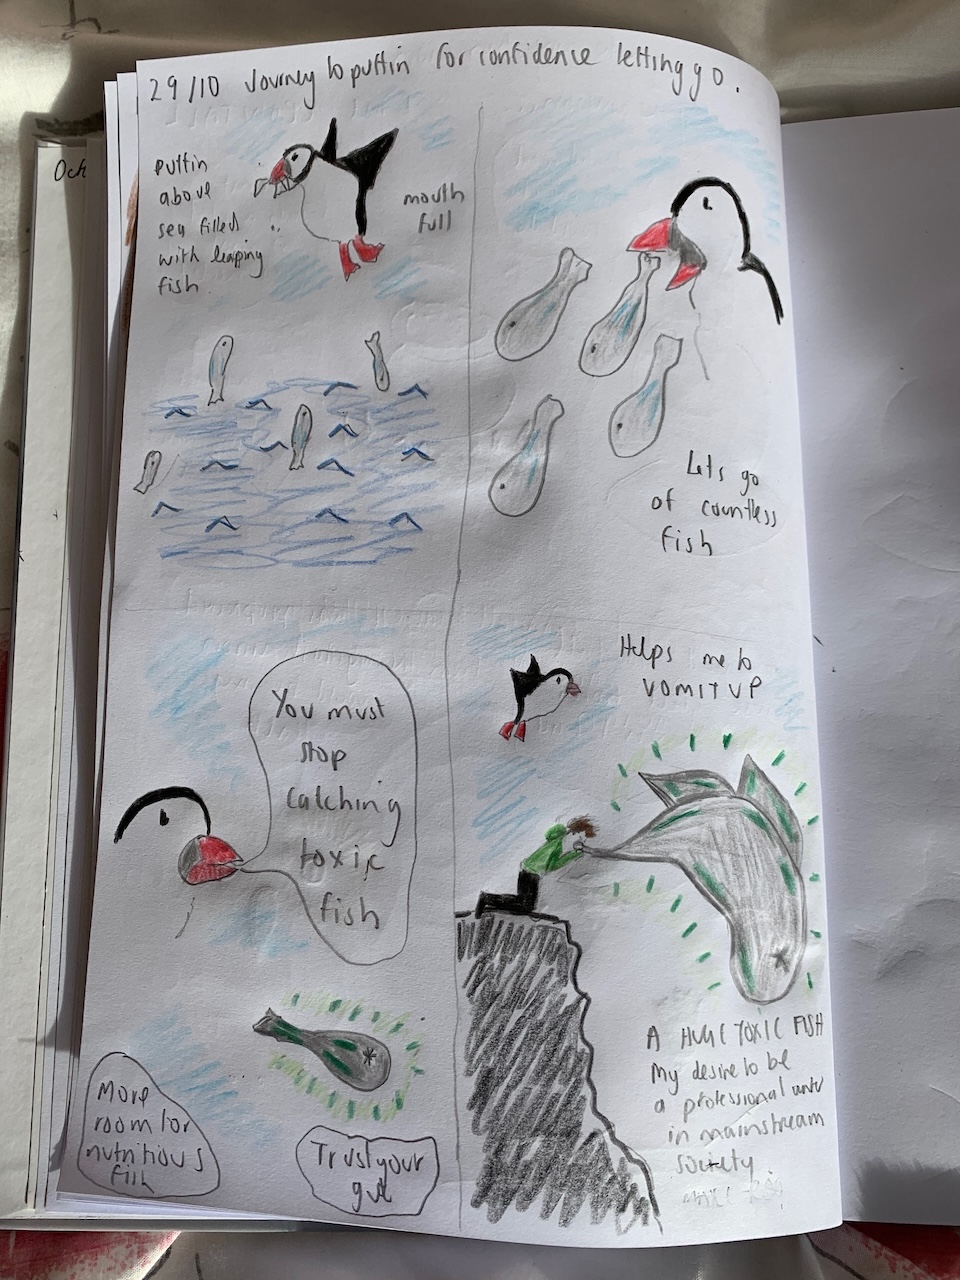 29/10 Journey to puffin for confidence letting go.
Puffin
above
sea filled
with leaping
fish.
mouth
full
Lets go
of countless
fish
You must
stop
catching
toxic
fish
More
room for
nutritious
fish
Trust your
gut
Helps me to
VOMIT UP
A HUGE TOXIC FISH
My desire to be
a professional
in mainstream
society